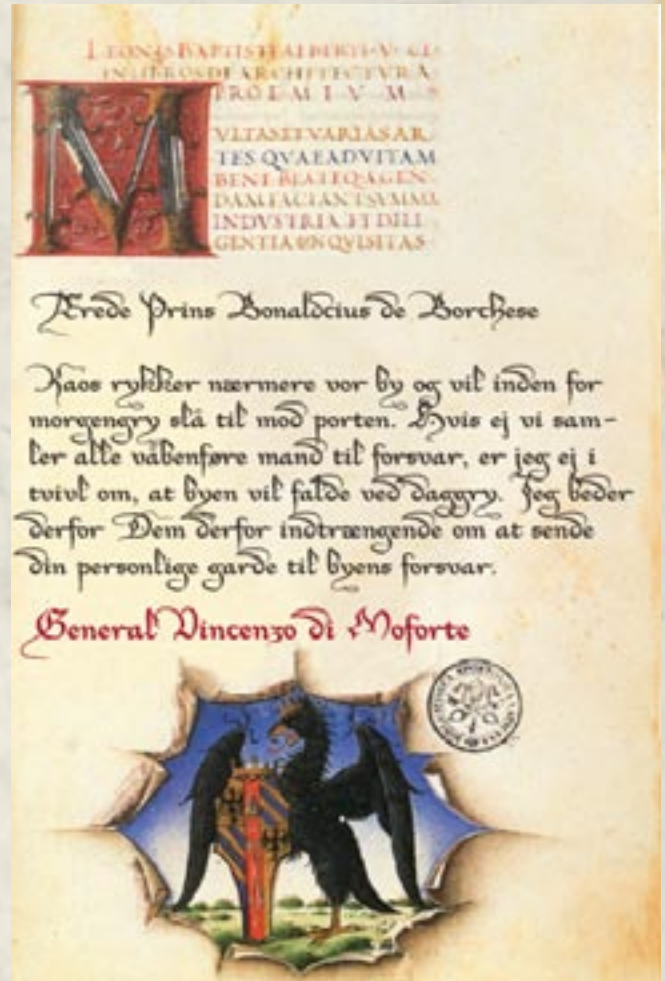 LEONIS BAPTISTE ALBERTI
IN LIBROS DE ARCHITECTVRA
PROEMIVM
M
VLTAS ET VARIAS AR
TES QVAE AD VITAM
BENE BEATEQ AGEN
DAM FACIANT SVMMA
INDVSTRIA ET DILI
GENTIA CONQVISITAS
Ærede Prins Bonaldcius de Borchese
Kaos rykker nærmere vor by og vil inden for
morgengry slå til mod porten. Hvis ej vi sam-
ler alle våbenføre mand til forsvar, er jeg ej i
tvivl om, at byen vil falde ved daggry. Jeg beder
derfor Dem derfor indtrængende om at sende
din personlige garde til byens forsvar.
General Vincenzo di Moforte